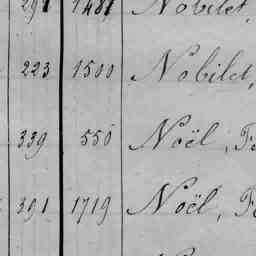 291 1481 Nobilet,
223 1500 Nobilet,
339 550 Noël, Fé
391 1719 Noël, Fé